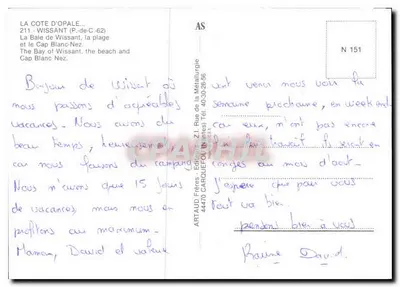 LA COTE D'OPALE...
211 - WISSANT (P.-de-C.-62)
La Baie de Wissant, la plage
et le Cap Blanc-Nez.
The Bay of Wissant, the beach and
Cap Blanc Nez.
AS
N 151
ARTAUD Frères, Editeurs - Z.I. Rue de la Métallurgie
44470 CARQUEFOU (Nantes) Tél. 40-30-26-56
Bonjour de Wissant où
nous passons d'agréables
vacances. Nous avons du
beau temps, heureusement
car nous faisons du camping
Nous n'avons que 15 jours
de vacances mais nous en
profitons au maximum.
Maman, David et
sont venus nous voir la
semaine prochaine, en week end
car eux, n'ont pas encore
ils seront en
congés au mois d'août.
J'espère que pour vous
tout va bien.
pensons bien à vous
David